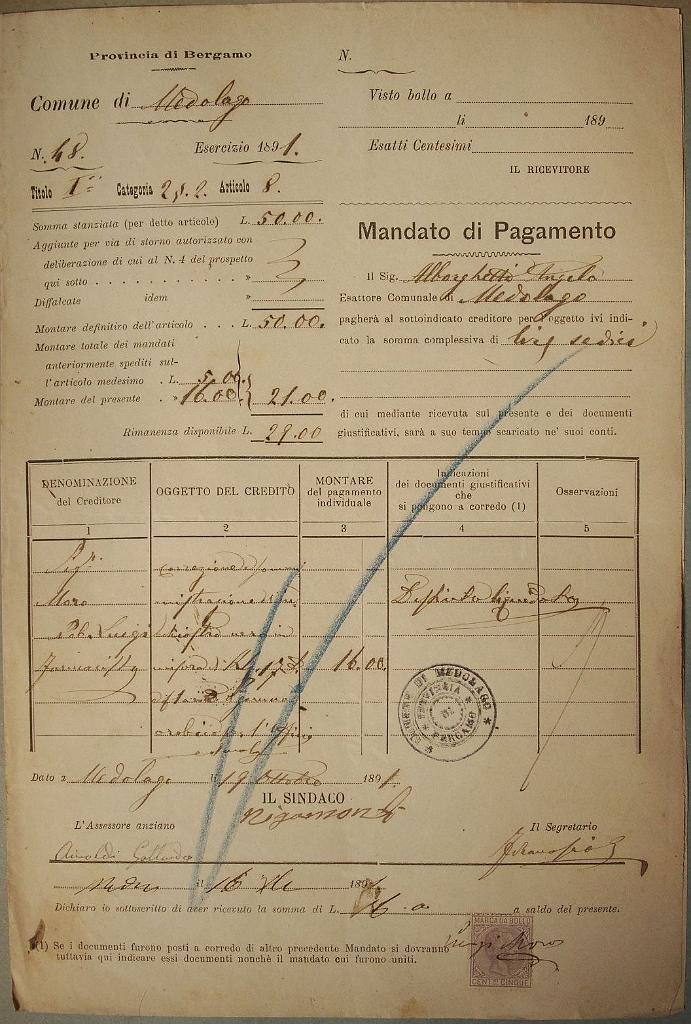 Provincia di Bergamo
Comune di Medolago
N. 48. Esercizio 1891.
Titolo I° Categoria 2 Articolo 8.
Somma stanziata (per detto articolo) L. 50.00.
Aggiunte per via di storno autorizzato con
deliberazione di cui al N. 4 del prospetto
qui sotto . . . . . . . . . . »
Diffalcate idem »
Montare definitivo dell'articolo . . . L. 50.00.
Montare totale dei mandati
anteriormente spediti sul-
l'articolo medesimo . L. 5.00
Montare del presente . » 16.00 21.00.
Rimanenza disponibile L. 29.00
N.
Visto bollo a
li 189
Esatti Centesimi
IL RICEVITORE
Mandato di Pagamento
Il Sig. Alborghetti Angelo
Esattore Comunale di Medolago
pagherà al sottoindicato creditore per l'oggetto ivi indi-
cato la somma complessiva di lire sedici
di cui mediante ricevuta sul presente e dei documenti
giustificativi, sarà a suo tempo scaricato ne' suoi conti.
DENOMINAZIONE
del Creditore
OGGETTO DEL CREDITO
MONTARE
del pagamento
individuale
Indicazioni
dei documenti giustificativi
che
si pongono a corredo (1)
Osservazioni
1 2 3 4 5
Sigr.
Moro
Nob. Luigi
farmacista
correzione di somministrazione
nero in
16.00
COMUNE DI MEDOLAGO
PROVINCIA DI BERGAMO
Dato a Medolago li 19 Ottobre 1891.
IL SINDACO
L'Assessore anziano
Il Segretario
il 16 1891
Dichiaro io sottoscritto di aver ricevuto la somma di L. 16 a saldo del presente.
Luigi Moro
MARCA DA BOLLO
CENT. DI CINQUE
(1) Se i documenti furono posti a corredo di altro precedente Mandato si dovranno
tuttavia qui indicare essi documenti nonchè il mandato cui furono uniti.